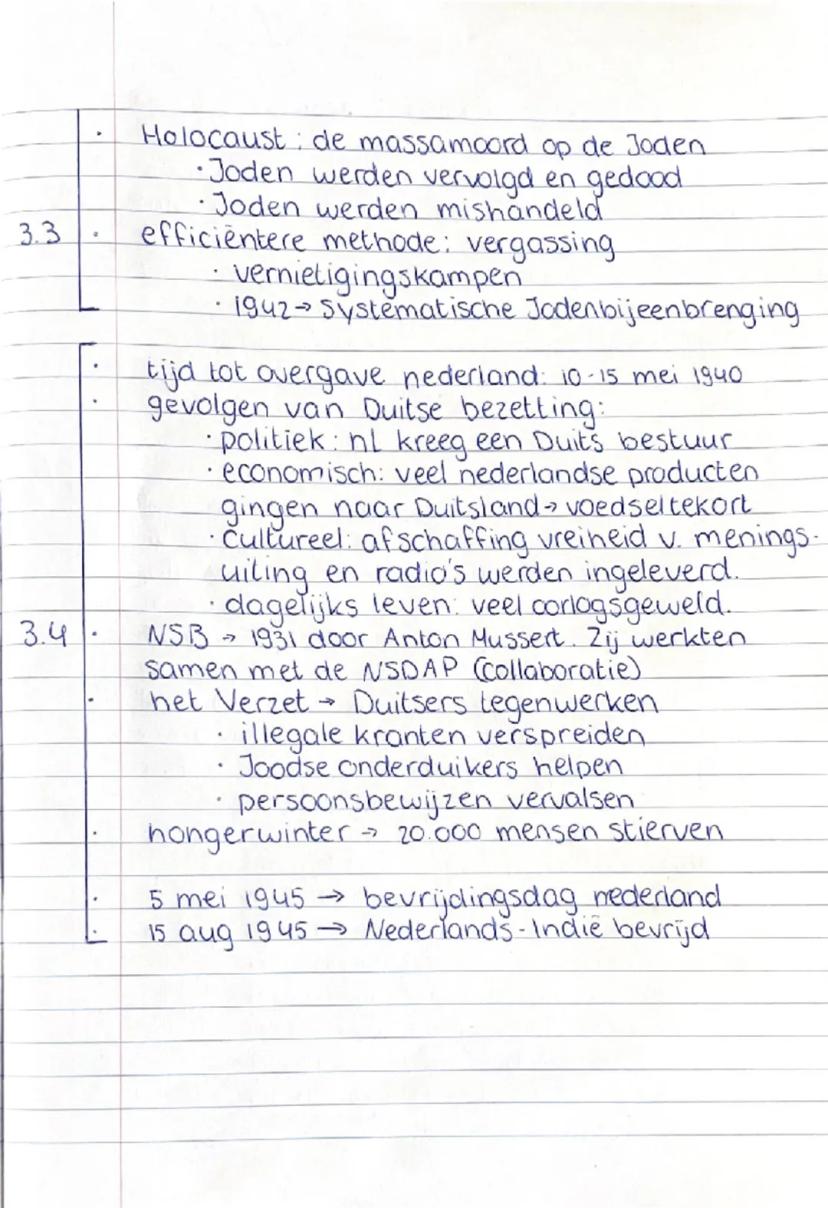 · Holocaust: de massamoord op de Joden
· Joden werden vervolgd en gedood
· Joden werden mishandeld
3.3 · efficiëntere methode: vergassing
· vernietigingskampen
· 1942 → Systematische Jodenbijeenbrenging
· tijd tot overgave nederland: 10-15 mei 1940
· gevolgen van Duitse bezetting:
· politiek: nl kreeg een Duits bestuur
· economisch: veel nederlandse producten
gingen naar Duitsland → voedseltekort
· cultureel: afschaffing vreiheid v. menings-
uiting en radio's werden ingeleverd.
· dagelijks leven: veel oorlogsgeweld.
3.4 · NSB → 1931 door Anton Mussert. Zij werkten
samen met de NSDAP (collaboratie)
· het Verzet → Duitsers tegenwerken
· illegale kranten verspreiden
· Joodse onderduikers helpen
· persoonsbewijzen vervalsen
· hongerwinter → 20.000 mensen stierven
· 5 mei 1945 → bevrijdingsdag nederland
· 15 aug 1945 → Nederlands-Indië bevrijd